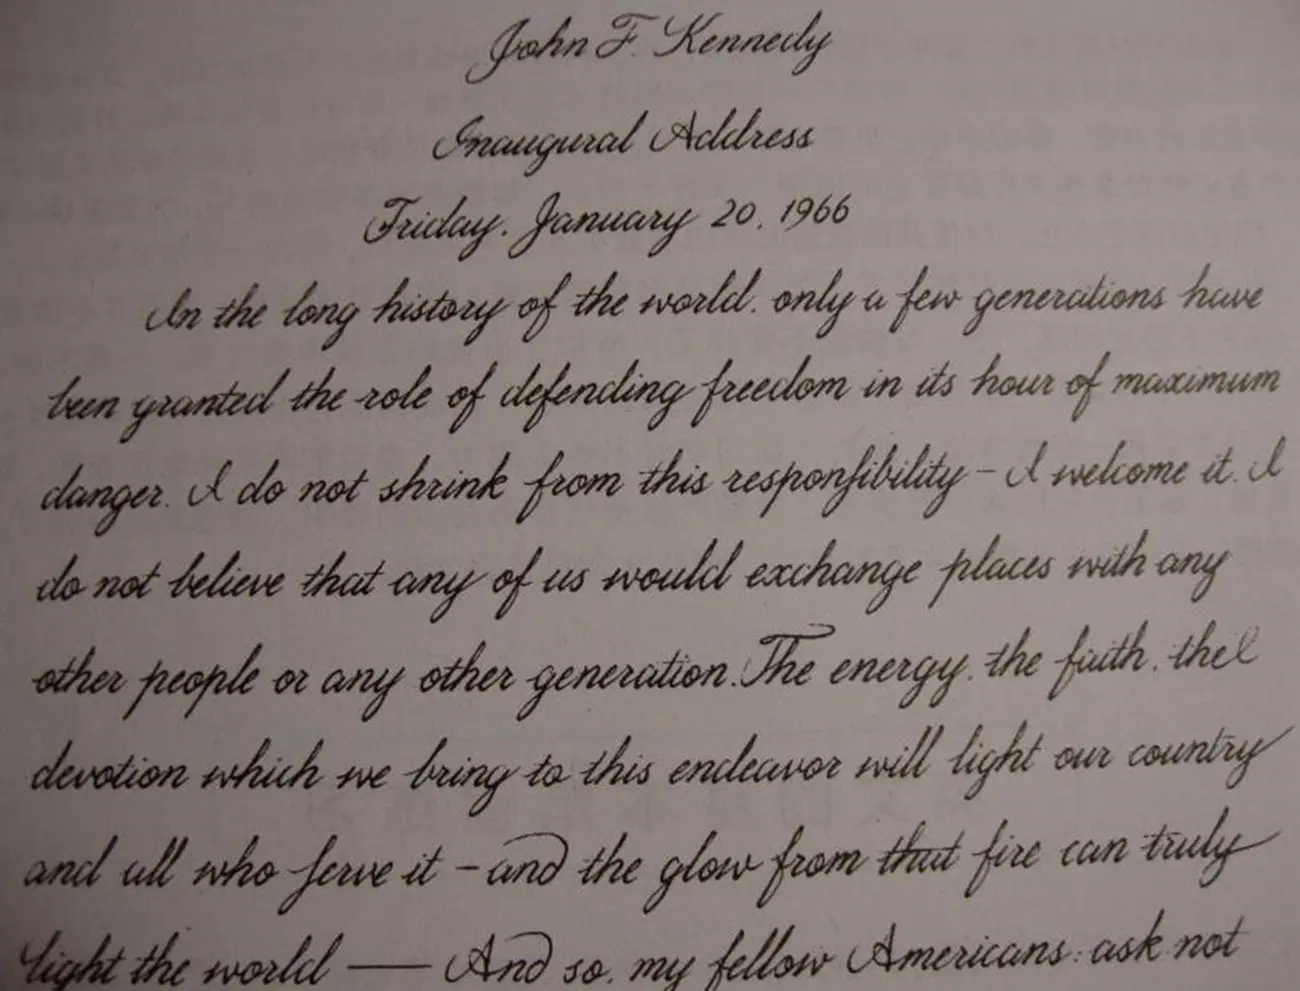 John F. Kennedy
Inaugural Address
Friday. January 20. 1966
In the long history of the world. only a few generations have
been granted the role of defending freedom in its hour of maximum
danger. I do not shrink from this responſibility – I welcome it. I
do not believe that any of us would exchange places with any
other people or any other generation. The energy. the faith. the
devotion which we bring to this endeavor will light our country
and all who ſerve it – and the glow from that fire can truly
light the world — And so. my fellow Americans: ask not